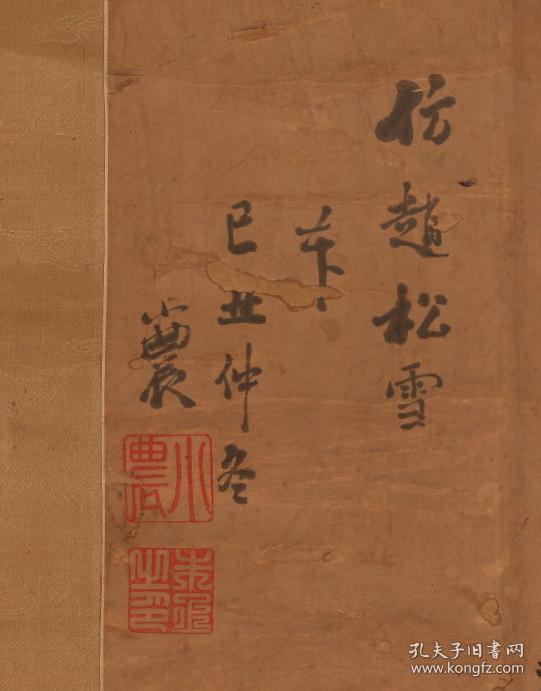 仿趙松雪
己丑仲冬
小農
小農
之印
孔夫子旧书网
www.kongfz.com